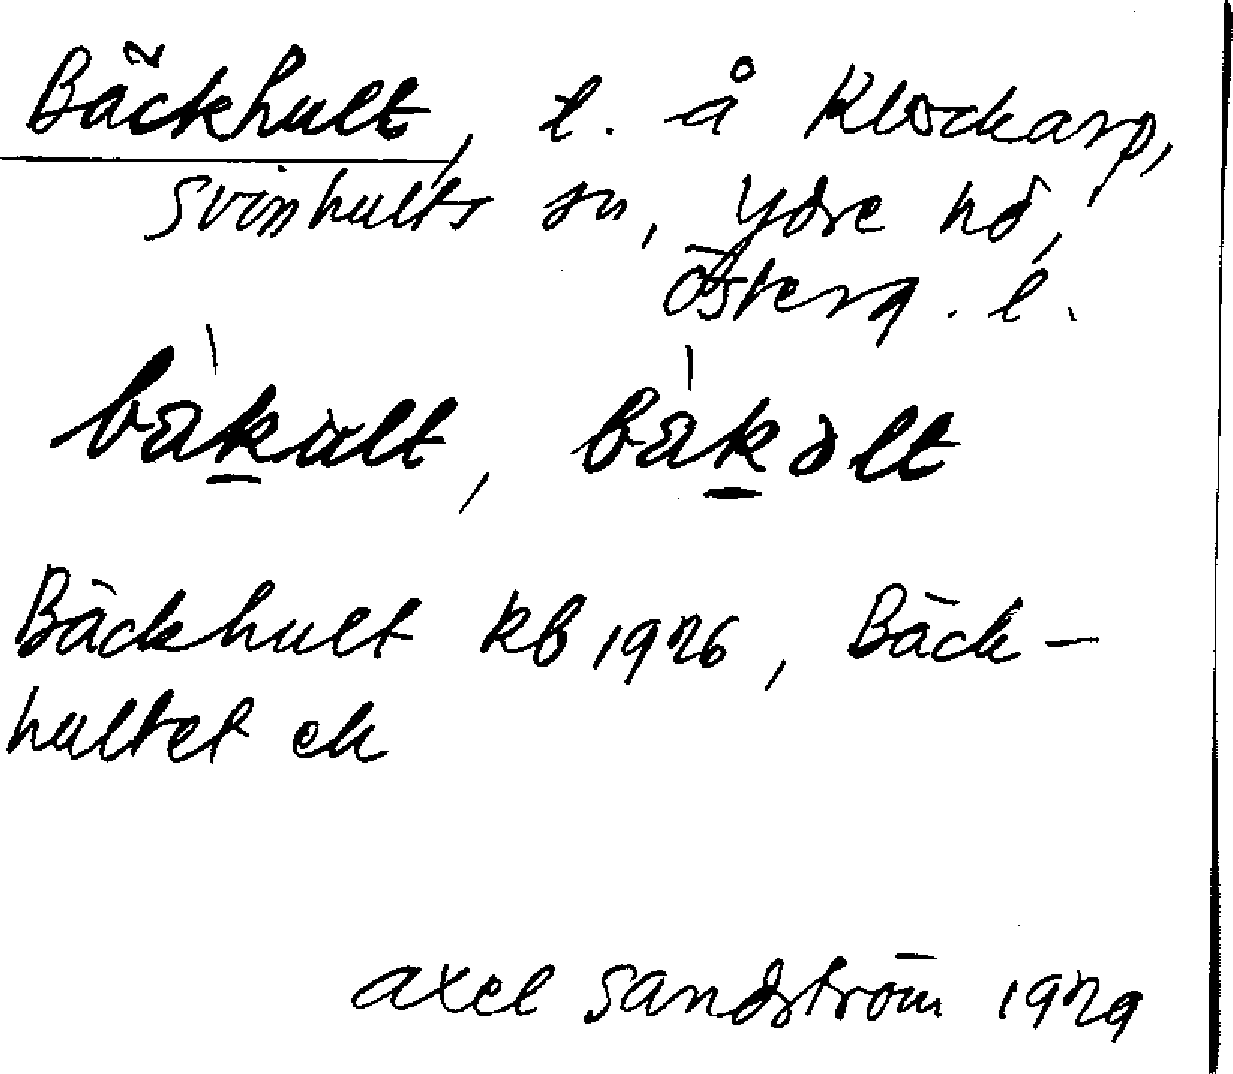 Bäckhult, l. å Klockarp,
Svinhults sn, Ydre hd,
Österg. l.
bàkult, bàkolt
Bäckhult kb 1926, Bäck-
hultet ek
Axel Sandström 1929